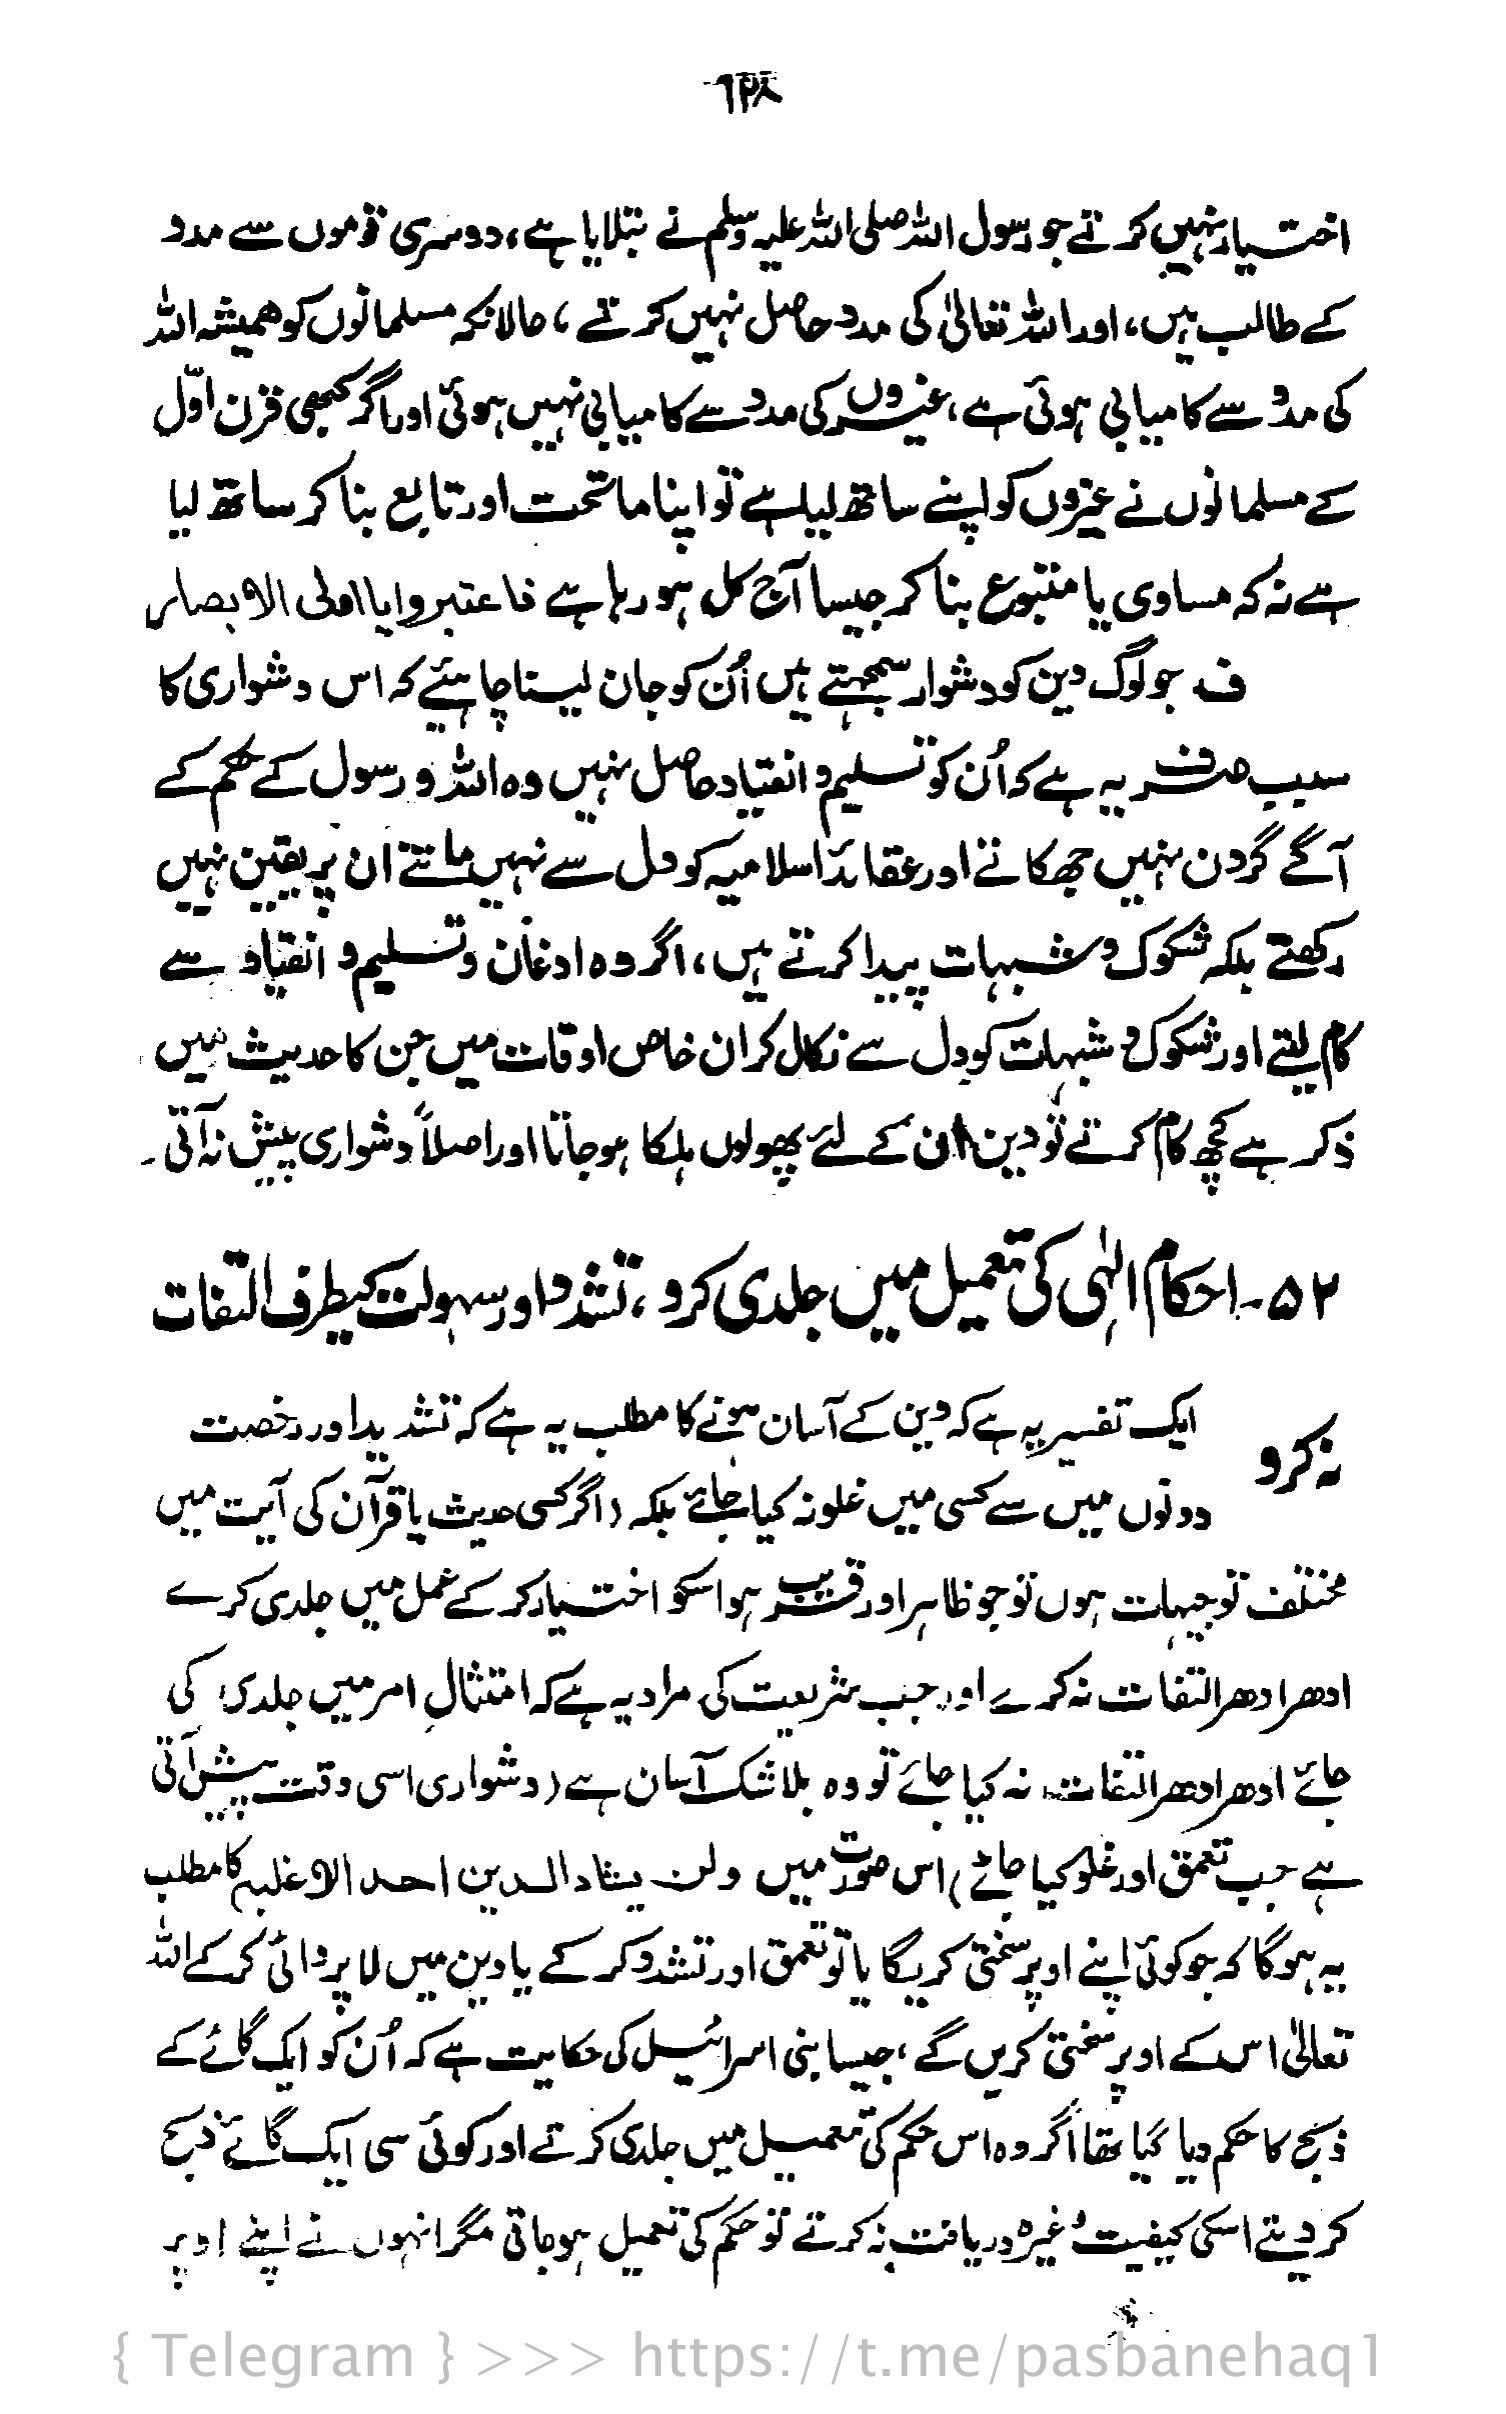 ۶۳۸
اختیار نہیں کرتے جو رسول اللہ صلی اللہ علیہ وسلم نے بتلایا ہے، دوسری قوموں سے مدد
کے طالب ہیں، اور اللہ تعالیٰ کی مدد حاصل نہیں کرتے، حالانکہ مسلمانوں کو ہمیشہ اللہ
کی مدد سے کامیابی ہوئی ہے، غیروں کی مدد سے کامیابی نہیں ہوئی اور اگر کبھی قرن اوّل
کے مسلمانوں نے غیروں کو اپنے ساتھ لیا ہے تو اپنا ماتحت اور تابع بنا کر ساتھ لیا
ہے نہ کہ مساوی یا متبوع بنا کر جیسا آج کل ہو رہا ہے فاعتبروا یا اولی الابصار
ف جو لوگ دین کو دشوار سمجھتے ہیں اُن کو جان لینا چاہئیے کہ اس دشواری کا
سبب صرف یہ ہے کہ اُن کو تسلیم و انقیاد حاصل نہیں وہ اللہ و رسول کے حکم کے
آگے گردن نہیں جھکاتے اور عقائد اسلامیہ کو دل سے نہیں مانتے ان پر یقین نہیں
رکھتے بلکہ شکوک و شبہات پیدا کرتے ہیں، اگر وہ اذعان و تسلیم و انقیاد سے
کام لیتے اور شکوک و شبہات کو دل سے نکال کر ان خاص اوقات میں جن کا حدیث میں
ذکر ہے کچھ کام کرتے تو دین ان کے لئے پھولوں ہلکا ہو جاتا اور اصلاً دشواری پیش نہ آتی۔
۵۲۔ احکام الٰہی کی تعمیل میں جلدی کرو، تشدد اور سہولت کیطرف التفات
نہ کرو
ایک تفسیر یہ ہے کہ دین کے آسان ہونے کا مطلب یہ ہے کہ تشدید اور رخصت
دونوں میں سے کسی میں غلو نہ کیا جائے بلکہ (اگر کسی حدیث یا قرآن کی آیت میں
مختلف توجیہات ہوں تو جو ظاہر اور قریب ہو اسکو اختیار کر کے عمل میں جلدی کرے
ادھر ادھر التفات نہ کرے اور جب شریعت کی مراد یہ ہے کہ امتثال امر میں جلدی کی
جائے ادھر ادھر التفات نہ کیا جائے تو وہ بلا شک آسان ہے (دشواری اسی وقت پیش آتی
ہے جب تعمق اور غلو کیا جائے) اس صورت میں ولن یشاد الدین احد الا غلبہ کا مطلب
یہ ہوگا کہ جو کوئی اپنے اوپر سختی کریگا یا تو تعمق اور تشدد کر کے یا دین میں لا پروائی کر کے اللہ
تعالیٰ اس کے اوپر سختی کریں گے، جیسا بنی اسرائیل کی حکایت ہے کہ اُن کو ایک گائے کے
ذبح کا حکم دیا گیا تھا اگر وہ اس حکم کی تعمیل میں جلدی کرتے اور کوئی سی ایک گائے ذبح
کر دیتے اسکی کیفیت وغیرہ دریافت نہ کرتے تو حکم کی تعمیل ہو جاتی مگر انہوں نے اپنے اوپر
{ Telegram } >>> https://t.me/pasbanehaq1